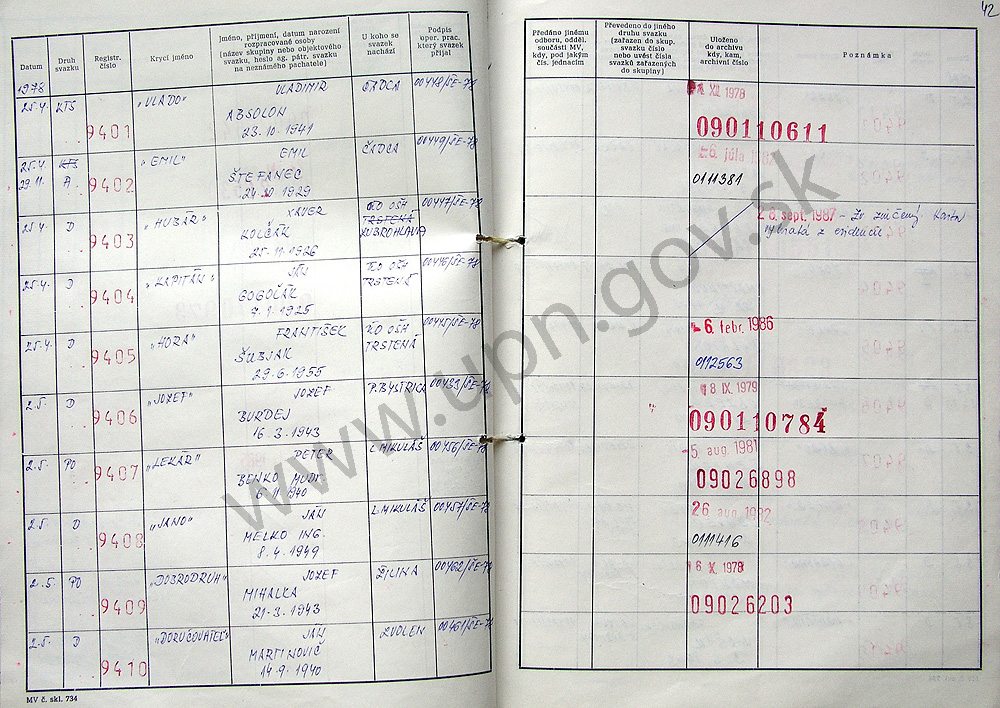 42
Datum
Druh svazku
Registr. číslo
Krycí jméno
Jméno, příjmení, datum narození
rozpracované osoby
(název skupiny nebo objektového
svazku, heslo ag. pátr. svazku
na neznámého pachatele)
U koho se
svazek
nachází
Podpis
oper. prac.
který svazek
přijal
Předáno jinému
odboru, odděl.
součásti MV,
kdy, pod jakým
čís. jednacím
Převedeno do jiného
druhu svazku
(zařazen do skup.
svazku číslo
nebo uvést čísla
svazků zařazených
do skupiny)
Uloženo
do archivu
kdy, kam,
archivní číslo
Poznámka
1978
25.4. KTS 9401 „VLADO" VLADIMIR ČADCA 00448/ŠE-78
ABSOLON
23.10.1941
XII 1978
090110611
25.4. KTS 9402 „EMIL" EMIL ČADCA 00449/ŠE-78
29.11. A ŠTEFANEC
1929
26. júla
0111381
25.4. D 9403 „HUBAR" XAVER 00447/ŠE-78
KOLČÁK TRSTENÁ
25.11.1926 ZUBROHLAVA
2 8. sept. 1987 - Zv. zničený, karta
vybratá z evidencie
25.4. D 9404 „KAPITÁN" JÁN OŠK 00446/ŠE-78
GOGOČÁK TRSTENÁ
7.1.1925
25.4. D 9405 „HORA" FRANTIŠEK OŠK 00445/ŠE-78
ŠUBJAK TRSTENÁ
29.6.1955
- 6. febr. 1986
0112563
2.5. D 9406 „JOZEF" JOZEF P.BYSTRICA 00433/ŠE-78
BURDEJ
16.3.1943
18 IX. 1979
090110784
2.5. PO 9407 „LEKÁR" PETER L.MIKULÁŠ 00456/ŠE-78
BENKO MUDr.
6.11.1940
-5 aug. 1981
09026898
2.5. D 9408 „JANO" JÁN L.MIKULÁŠ 00457/ŠE-78
MELKO ING.
8.4.1949
26 aug. 1982
0111416
2.5. PO 9409 „DOBRODRUH" JOZEF ŽILINA 00462/ŠE-78
MIHALKA
21.3.1943
16 X. 1978
09026203
2.5. D 9410 „DORUČOVATEĽ" JÁN ZVOLEN 00461/ŠE-78
MARTINOVIČ
14.9.1940
MV č. skl. 734
www.upn.gov.sk